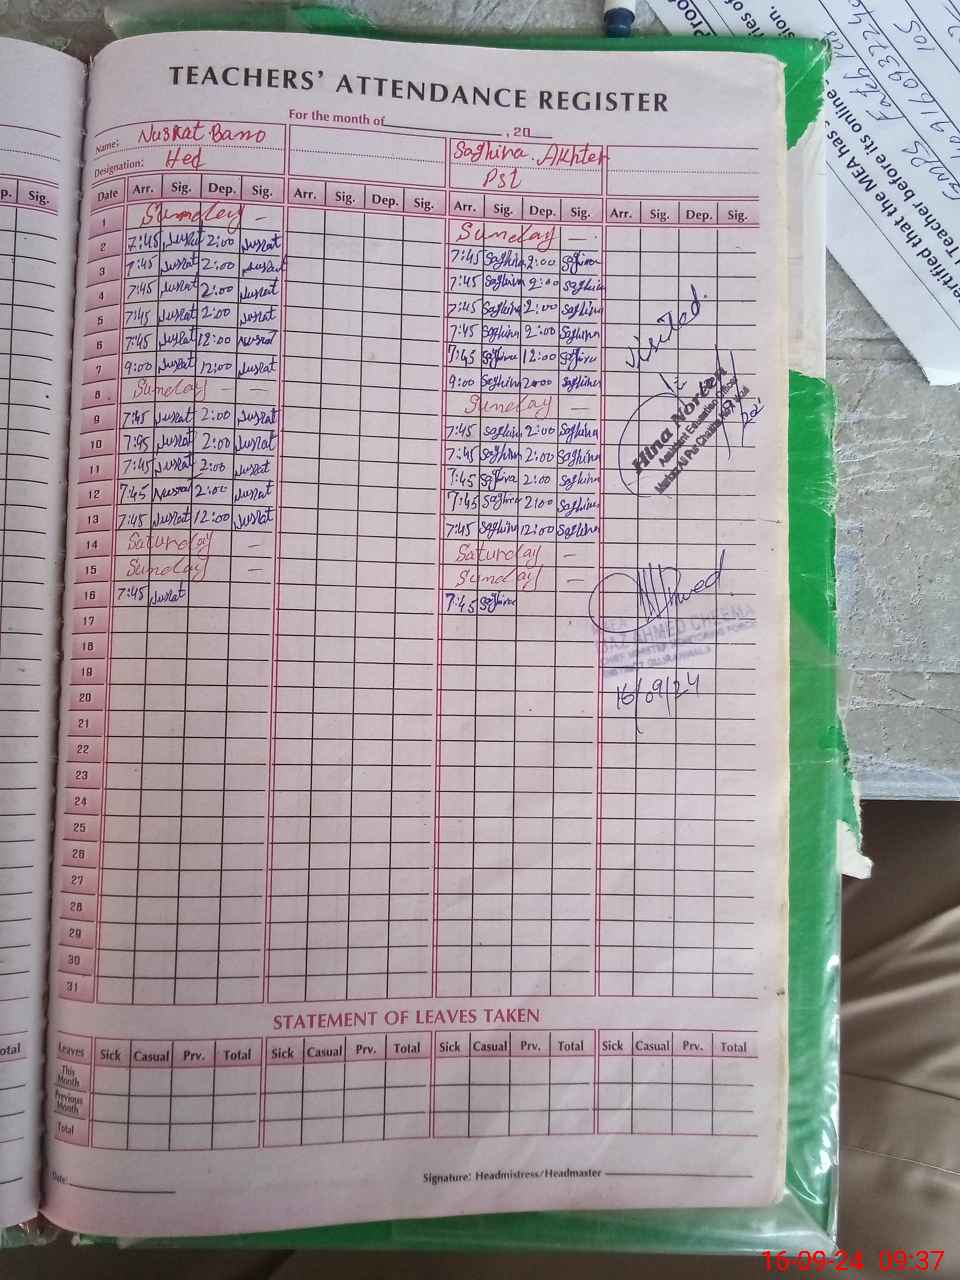 TEACHERS' ATTENDANCE REGISTER
For the month of , 20
Name: Nusrat Bano
Saghira Akhter
Designation: Hed
Pst
Date Arr. Sig. Dep. Sig. Arr. Sig. Dep. Sig. Arr. Sig. Dep. Sig. Arr. Sig. Dep. Sig.
1 Sunday — Sunday —
2 7:45 Nusrat 2:00 Nusrat 7:45 Saghira 2:00 Saghira
3 7:45 Nusrat 2:00 Nusrat 7:45 Saghira 2:00 Saghira
4 7:45 Nusrat 2:00 Nusrat 7:45 Saghira 2:00 Saghira
5 7:45 Nusrat 2:00 Nusrat 7:45 Saghira 2:00 Saghira
6 7:45 Nusrat 12:00 Nusrat 7:45 Saghira 12:00 Saghira
7 9:00 Nusrat 12:00 Nusrat 9:00 Saghira Saghira
8 Sunday — Sunday —
9 7:45 Nusrat 2:00 Nusrat 7:45 Saghira 2:00 Saghira
10 7:45 Nusrat 2:00 Nusrat 7:45 Saghira 2:00 Saghira
11 7:45 Nusrat 2:00 Nusrat 7:45 Saghira 2:00 Saghira
12 7:45 Nusrat 2:00 Nusrat 7:45 Saghira 2:00 Saghira
13 7:45 Nusrat 12:00 Nusrat 7:45 Saghira 12:00 Saghira
14 Saturday — Saturday —
15 Sunday — Sunday —
16 7:45 Nusrat 7:45 Saghira
17
18
19
20
21
22
23
24
25
26
27
28
29
30
31
visited.
Hina Noreen
Assistant Education Officer
Ahmed
IJAZ AHMED CHEEMA
16/09/24
STATEMENT OF LEAVES TAKEN
Leaves Sick Casual Prv. Total Sick Casual Prv. Total Sick Casual Prv. Total Sick Casual Prv. Total
This Month
Previous Month
Total
Date:
Signature: Headmistress/Headmaster
p. Sig.
otal
ertified that the MEA has
Teacher before its online
16-09-24 09:37